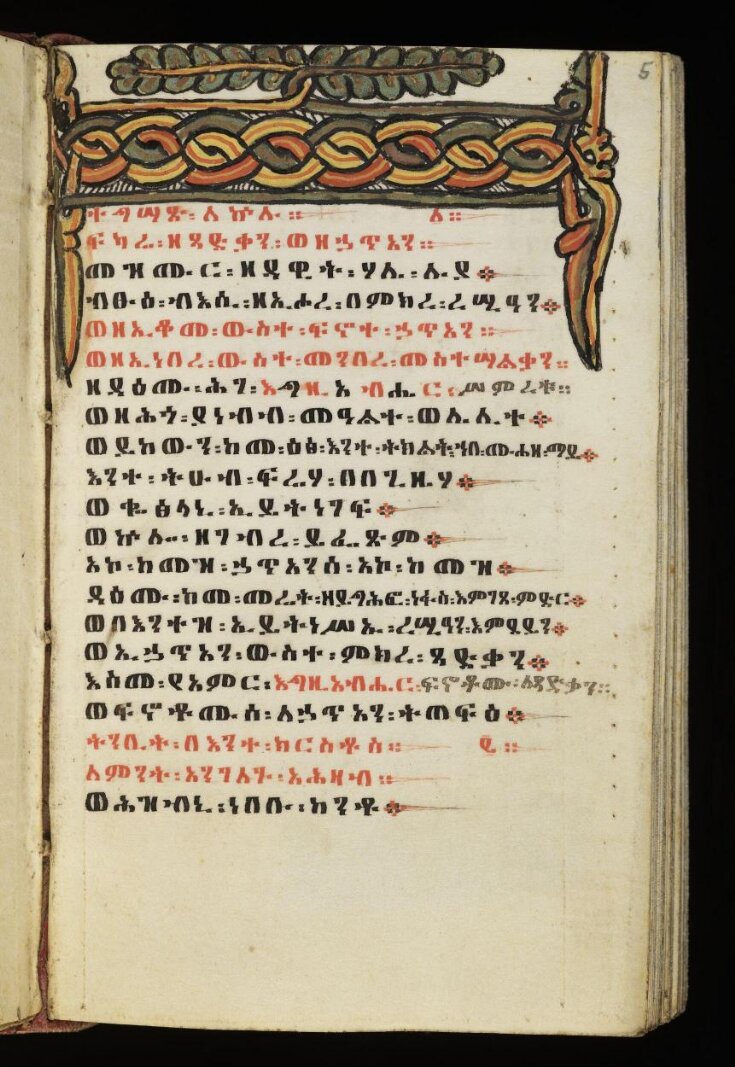 5
ተግሣጽ፡ ለኵሉ። ፩።
ፍካሬ፡ ዘጻድቃን፡ ወዘኃጥኣን።
መዝሙር፡ ዘዳዊት፡ ሃሌ፡ ሉያ።
ብፁዕ፡ ብእሲ፡ ዘኢሖረ፡ በምክረ፡ ረሢዓን።
ወዘኢቆመ፡ ውስተ፡ ፍኖተ፡ ኃጥኣን።
ወዘኢነበረ፡ ውስተ፡ መንበረ፡ መስተሣልቃን።
ዘዳዕሙ፡ ሕገ፡ እግዚአብሔር፡ ሥምረቱ።
ወዘሕጎ፡ ያነብብ፡ መዓልተ፡ ወሌሊተ።
ወይከውን፡ ከመ፡ ዕፅ፡ እንተ፡ ትክልት፡ ኀበ፡ ሙሐዘ፡ ማይ።
እንተ፡ ትሁብ፡ ፍሬሃ፡ በበጊዜሃ።
ወቈፅላኒ፡ ኢይትነገፍ።
ወኵሎ፡ ዘገብረ፡ ይፌጽም።
አኮ፡ ከመዝ፡ ኃጥኣንሰ፡ አኮ፡ ከመዝ።
ዳዕሙ፡ ከመ፡ መሬት፡ ዘይግሕፎ፡ ነፋስ፡ እምገጸ፡ ምድር።
ወበእንተዝ፡ ኢይትነሥኡ፡ ረሢዓን፡ እምደይን።
ወኢኃጥኣን፡ ውስተ፡ ምክረ፡ ጻድቃን።
እስመ፡ ያአምር፡ እግዚአብሔር፡ ፍኖቶሙ፡ ለጻድቃን።
ወፍኖቶሙሰ፡ ለኃጥኣን፡ ትጠፍዕ።
ትንቢት፡ በእንተ፡ ክርስቶስ። ፪።
ለምንት፡ አንገለጉ፡ አሕዛብ።
ወሕዝብኒ፡ ነበቡ፡ ከንቶ።